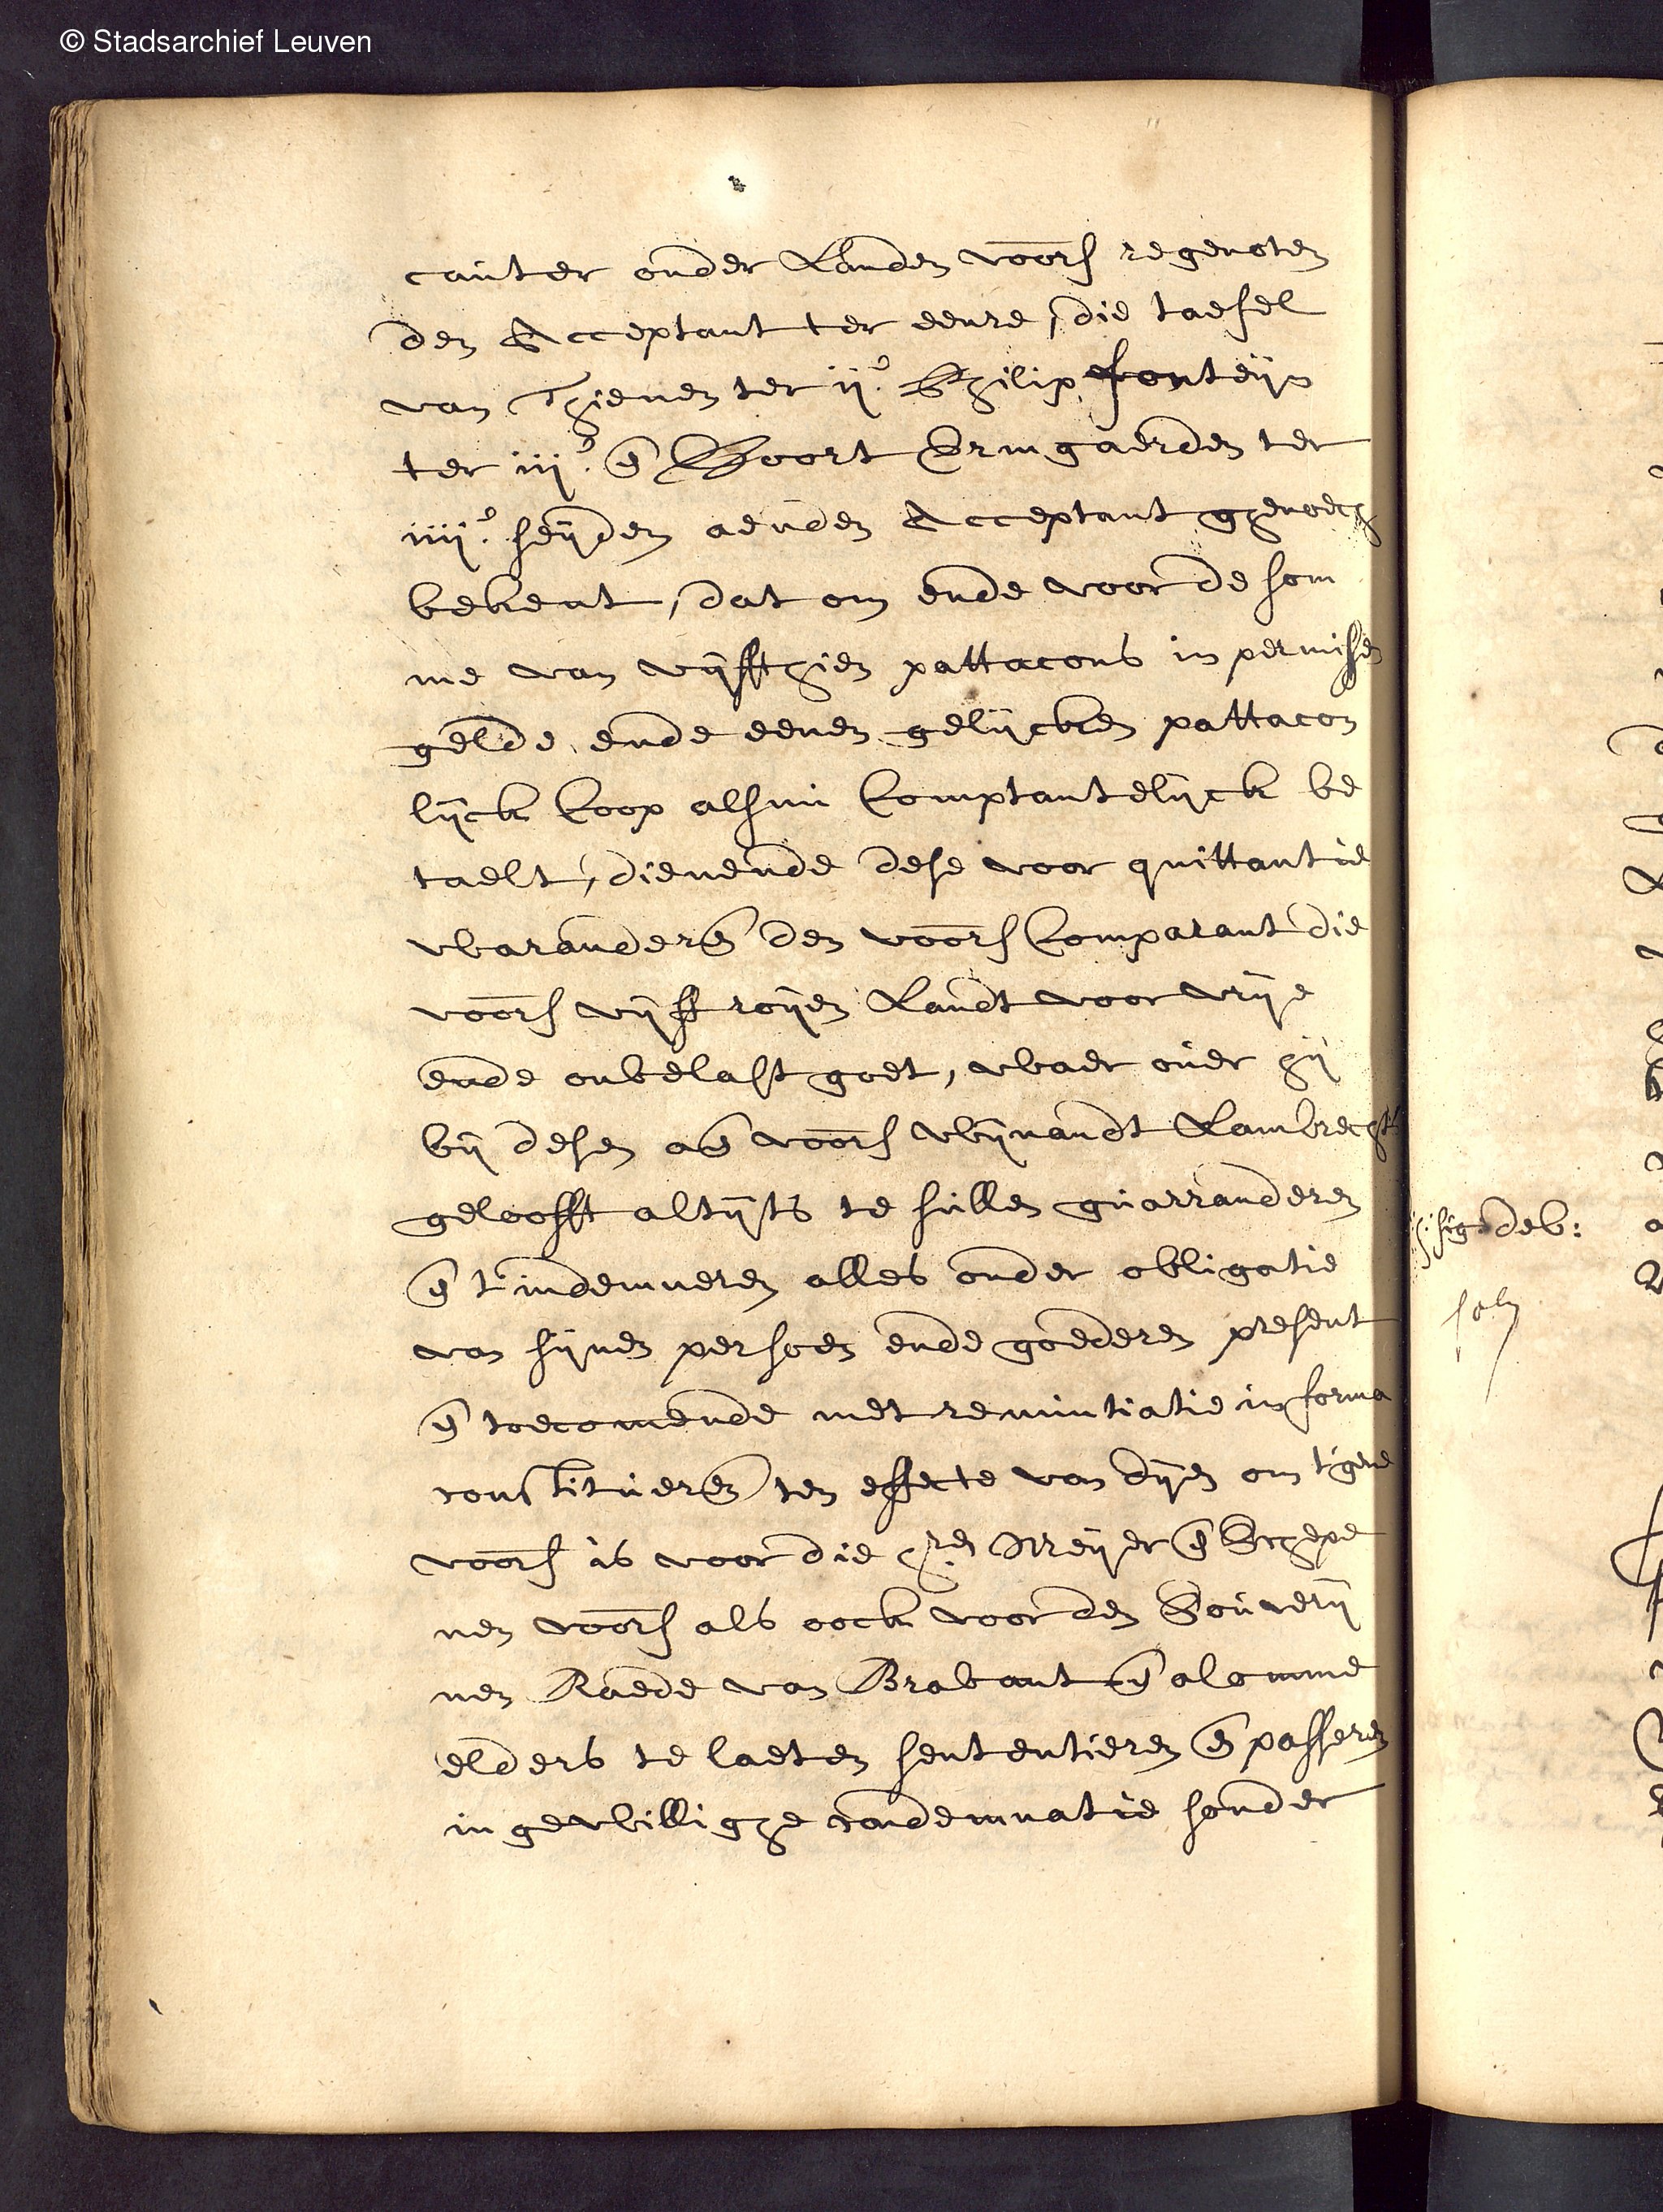 © Stadsarchief Leuven
cauter onder Landen voors regenoten
den Acceptant ter eenre, die taefel
van Thienen ter ij.e Philip fonteijn
ter iij.e en Goort Ermgaerden ter
iiij.e seijden aenden Acceptant ghenoech
bekent, dat om ende voor de som
me van vijffthien pattacons in permissen
gelde, ende eenen gelijcken pattacon
lijck coop alsnu Comptantelijck be
taelt, dienende dese voor quittantie
waranderen den voors Comparant die
voors vijff roijen Landt voor vrije
ende onbelast goet, waer over hij
bij desen aen voors Wijnandt Lambrechts
gelooft altijts te sullen guarranderen
en t'indemneren alles onder obligatie
van sijnen persoon ende goederen present
en toecomende met renuntiatie in forma
constitueren ten effecte van dijen om t'gene
voors is voor die heer Meijer en Schepe
nen voors als oock voor den Souverij
nen Raede van Brabant en alomme
elders te laeten sententieren en passeren
in gewillighe condemnatie sonder
sig deb: